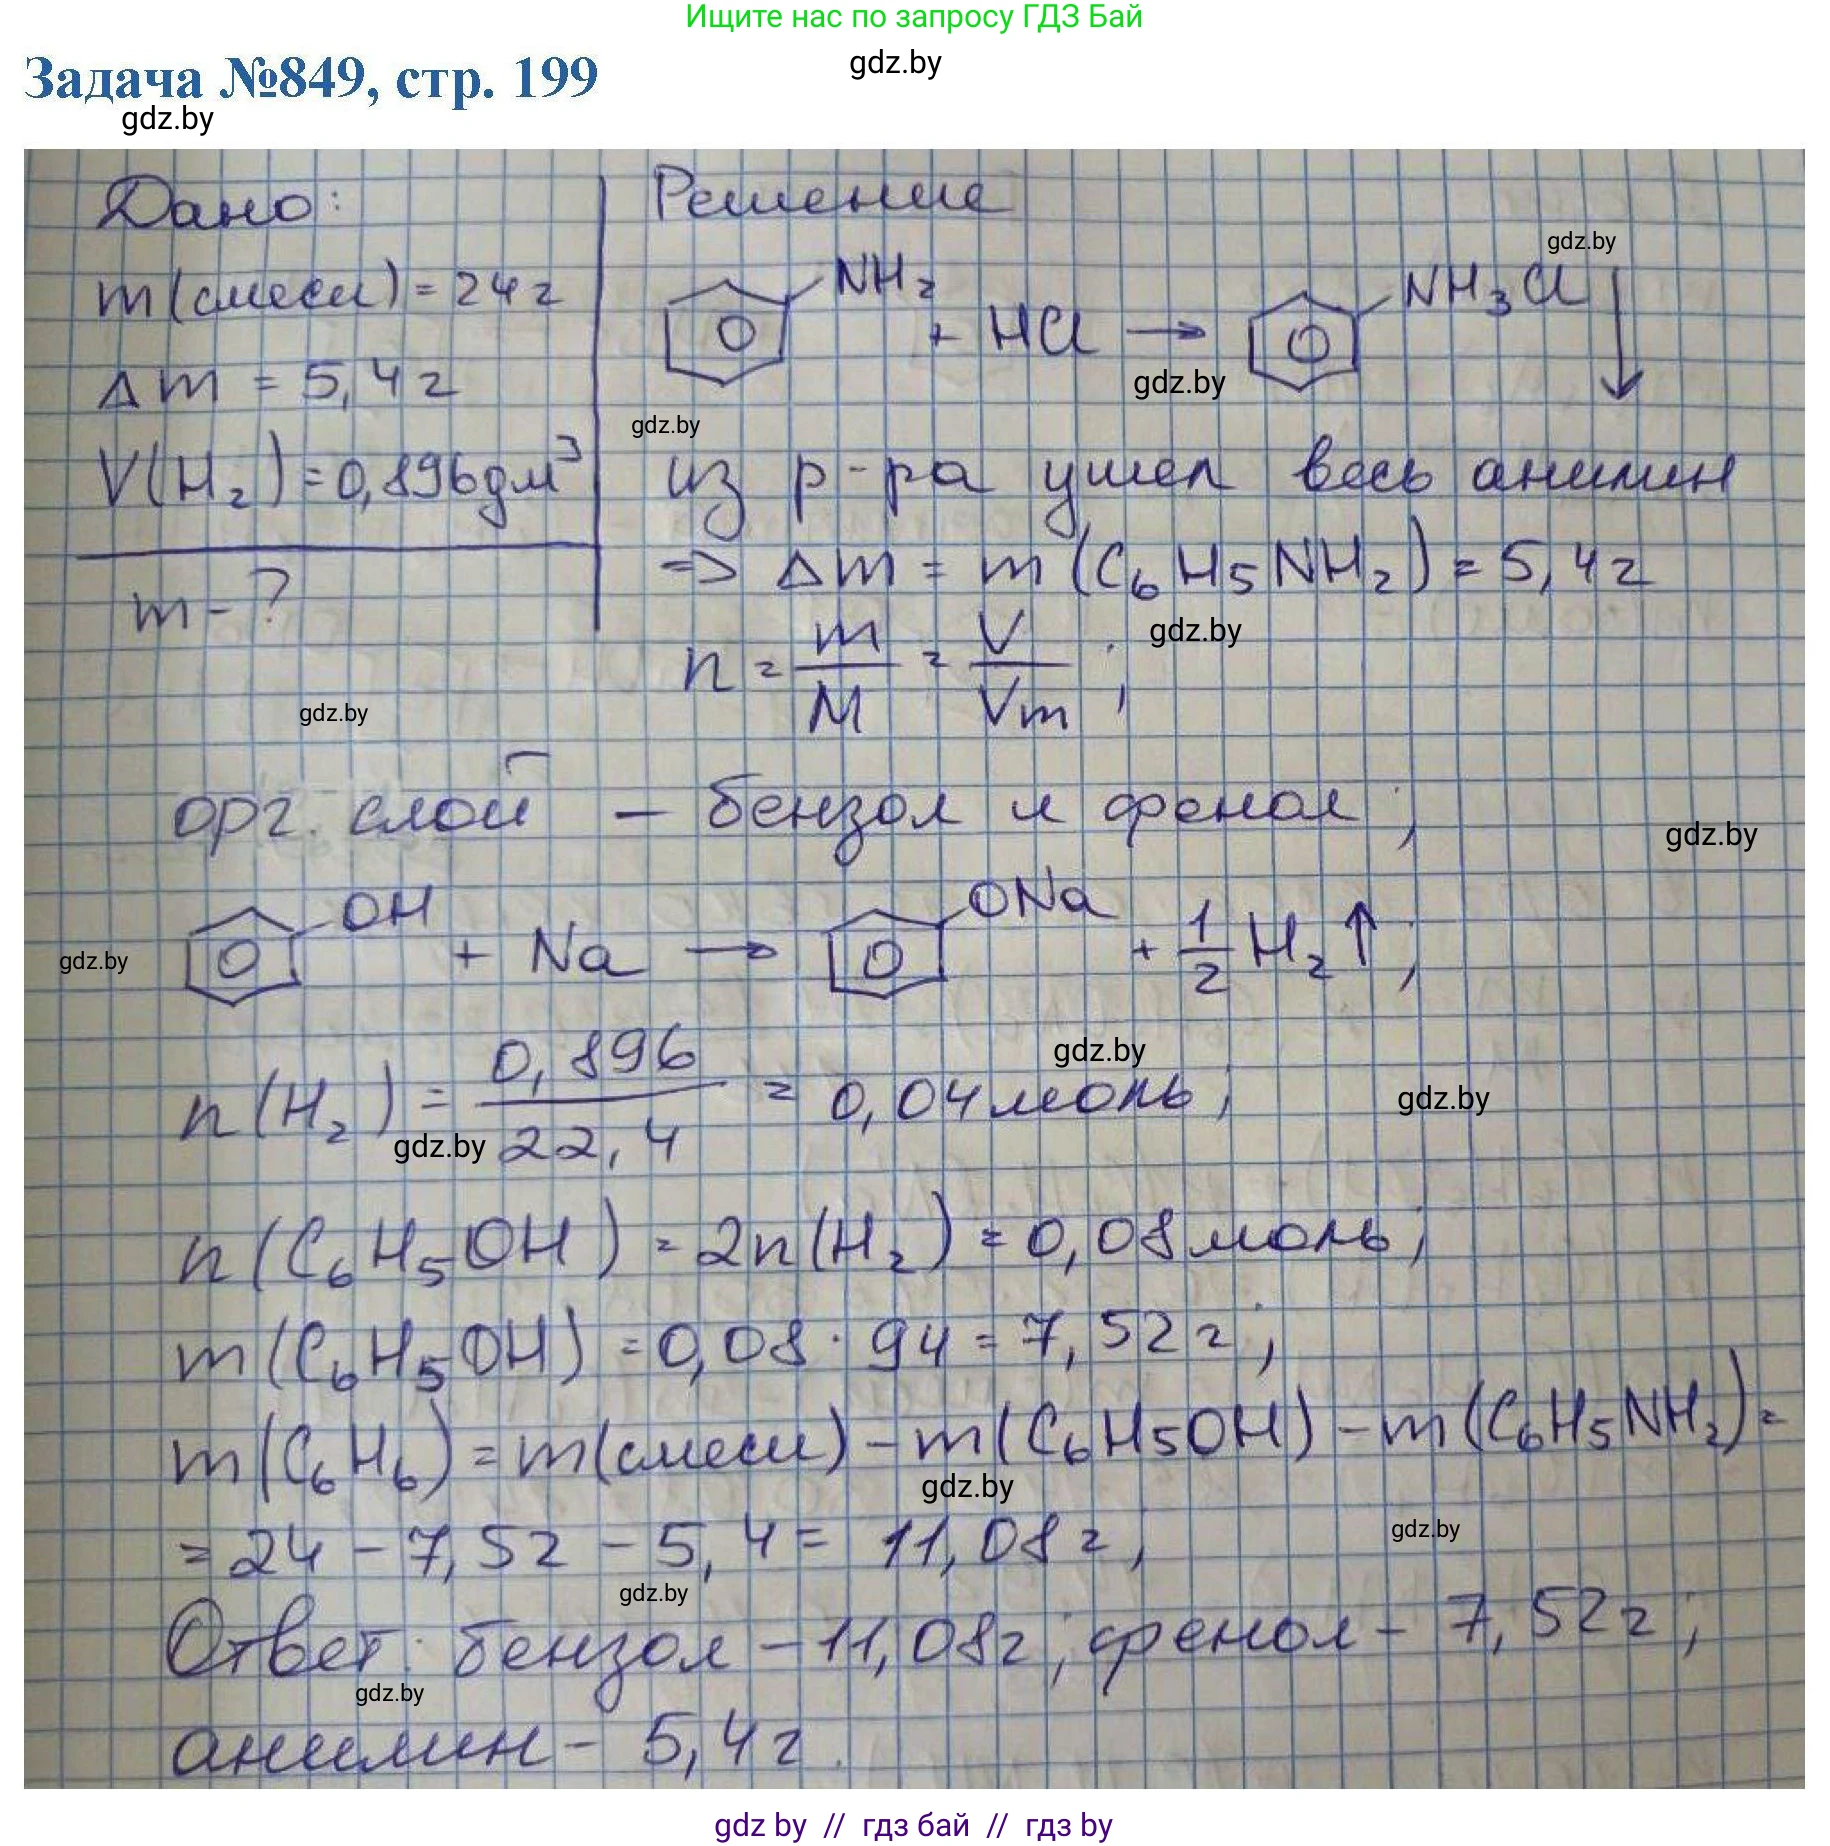 Ищите нас по запросу ГДЗ Бай
gdz.by
Задача №849, стр. 199
gdz.by
Дано:
m(смеси) = 24 г
Δm = 5,4 г
V(H₂) = 0,896 дм³
m - ?
Решение
NH₂ + HCl → NH₃Cl ↓
gdz.by
gdz.by
gdz.by
из р-ра ушел весь анилин
=> Δm = m(C₆H₅NH₂) = 5,4 г
gdz.by
n = m/M = V/Vm ;
gdz.by
орг. слой – бензол и фенол ;
gdz.by
OH + Na → ONa + 1/2 H₂↑ ;
gdz.by
gdz.by
n(H₂) = 0,896/22,4 = 0,04 моль ;
gdz.by
gdz.by
n(C₆H₅OH) = 2n(H₂) = 0,08 моль ;
m(C₆H₅OH) = 0,08 · 94 = 7,52 г ;
m(C₆H₆) = m(смеси) – m(C₆H₅OH) – m(C₆H₅NH₂) =
gdz.by
= 24 – 7,52 – 5,4 = 11,08 г ;
gdz.by
gdz.by
Ответ: бензол – 11,08 г ; фенол – 7,52 г ;
gdz.by
анилин – 5,4 г.
gdz by // гдз бай // гдз by